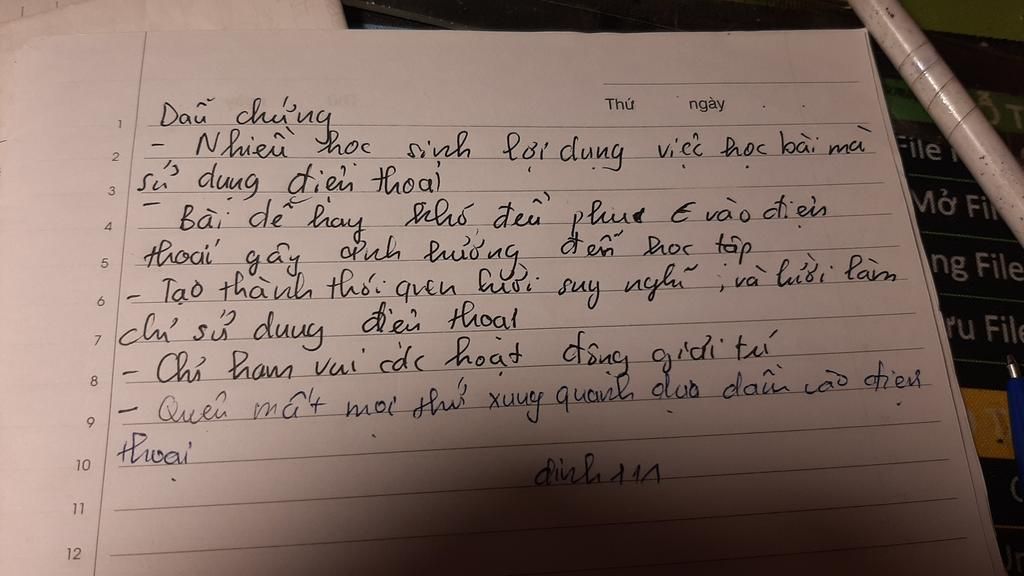 Thứ ngày
Dẫn chứng
- Nhiều học sinh lợi dụng việc học bài mà
sử dụng điện thoại
- Bài dễ hay khó đều phụ € vào điện
thoại gây ảnh hưởng đến học tập
- Tạo thành thói quen lười suy nghĩ, và lười làm
chỉ sử dụng điện thoại
- Chỉ ham vui các hoạt động giải trí
- Quên mất mọi thứ xung quanh dựa dẫm vào điện
thoại
định 11A
1
2
3
4
5
6
7
8
9
10
11
12
File
Mở Fil
ng File
ưu File